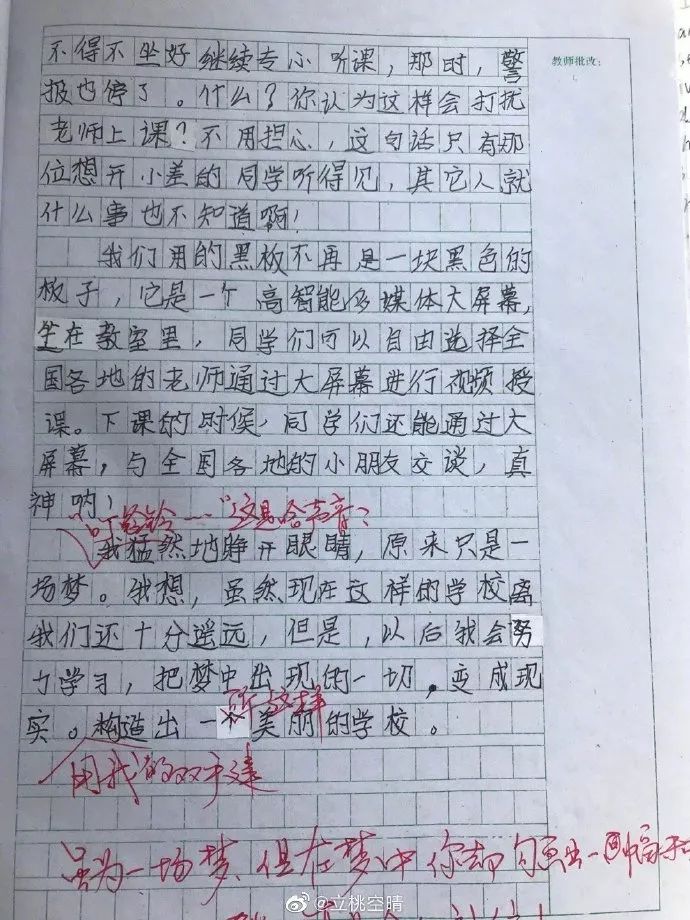 不得不坐好继续专心听课，那时，警
教师批改：
报也停了。什么？你认为这样会打扰
老师上课？不用担心，这句话只有那
位想开小差的同学听得见，其它人就
什么事也不知道啊！
我们用的黑板不再是一块黑色的
板子，它是一个高智能多媒体大屏幕，
坐在教室里，同学们可以自由选择全
国各地的老师通过大屏幕进行视频授
课。下课的时候，同学们还能通过大
屏幕，与全国各地的小朋友交谈，真
神呐！
"叮铃铃……"这是啥声音？
我猛然地睁开眼睛，原来只是一
场梦。我想，虽然现在这样的学校离
我们还十分遥远，但是，以后我会努
力学习，把梦中出现的一切，变成现
所这样
实。构造出一个美丽的学校。
用我的双手建
虽为一场梦，但在梦中你却勾画出一
@立桃空晴